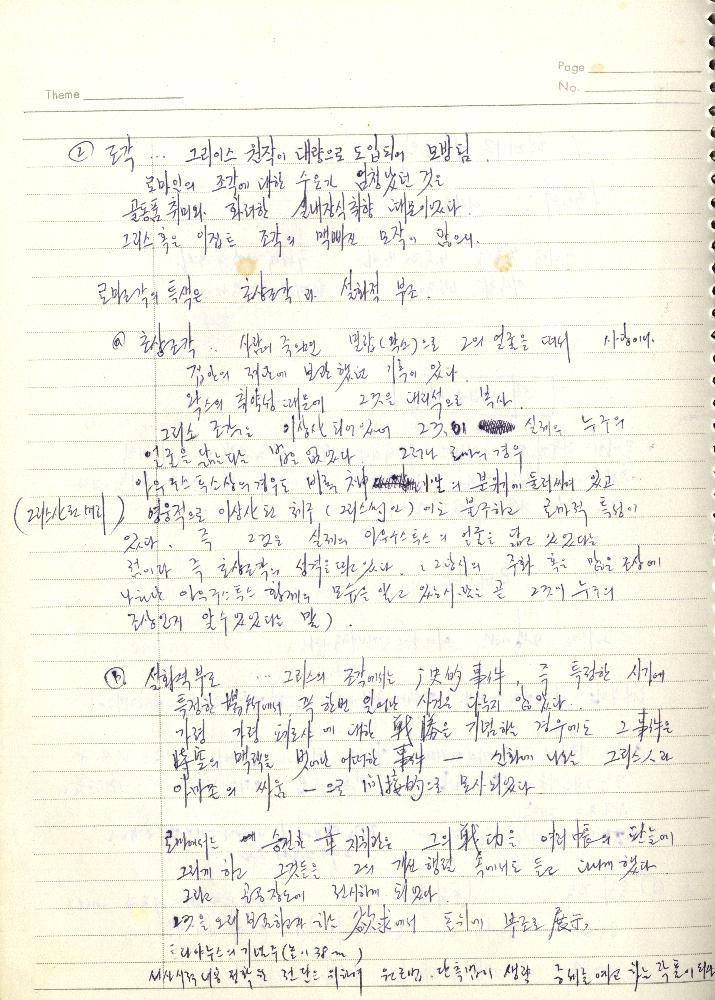 Page
Theme
No.
② 조각 ... 그리이스 원작이 대량으로 도입되어 모방됨.
로마인의 조각에 대한 수요가 엄청났던 것은
골동품 취미와 화려한 실내장식취향 때문이었다.
그리스 혹은 이집트 조각의 맥빠진 모작이 많으며.
로마조각의 특색은 초상조각과 설화적 부조.
ⓐ 초상조각 .. 사람이 죽으면 밀랍(왁스)으로 그의 얼굴을 떠서
집안의 제단에 보관했던 기록이 있다.
왁스의 취약성 때문에 그것을 대리석으로 복사.
그리스 조각은 이상화 되어있어 실제의 누구의
얼굴을 닮는다는 법은 없었다. 그러나 로마의 경우
아우구스투스상의 경우도 비록 의 분위기에 둘러싸여 있고
(그리스화된 머리) 영웅적으로 이상화된 체구 (그리스적인) 에도 불구하고 로마적 특성이
있다. 즉 그것은 실제의 아우구스투스의 얼굴을 닮고 있었다는
점이다 즉 초상조각의 성격을 띠고있다. (그 당시의 주화 혹은 많은 조상에
나타난 아우구스투스 황제의 모습을 알고 있는 시민은 곧 그것이 누구의
조상인지 알 수 있었다는 말).
ⓑ 설화적부조 ... 그리스의 조각에서는 史的 事件, 즉 특정한 시기에
특정한 場所에서 꼭 한번 일어난 사건은 다루지 않았다.
가령 페르샤에 대한 戰勝을 기념하는 경우에도 그 事件은
時空의 맥락을 벗어난 어떠한 事件 — 신화에 나오는 그리스人과
아마존의 싸움 — 으로 間接的으로 묘사되었다
로마에서는 승전한 軍 지휘관은 그의 戰功을 여러 의 판넬에
그리게 하고 그것들을 그의 개선 행렬 속에서 들고 지나게 했다.
그리고 공공장소에 전시하게 되었다.
그것을 오래 보존하고자 하는 欲求에서 돌위에 부조로 展示,
트라야누스의 기념주(높이 38m)
내용 전달을 위하여 원근법, 단축법이 생략